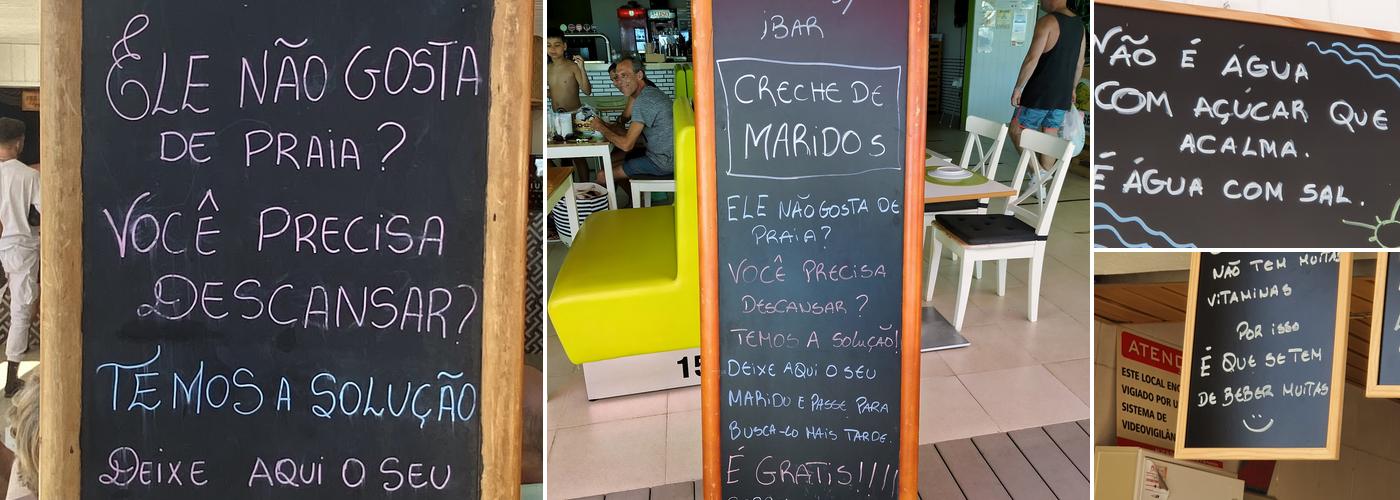 ELE NÃO GOSTA
DE PRAIA?
VOCÊ PRECISA
DESCANSAR?
TEMOS A SOLUÇÃO
DEIXE AQUI O SEU
¡BAR
CRECHE DE
MARIDOS
ELE NÃO GOSTA DE
PRAIA?
VOCÊ PRECISA
DESCANSAR?
TEMOS A SOLUÇÃO!
DEIXE AQUI O SEU
MARIDO E PASSE PARA
BUSCA-LO MAIS TARDE.
É GRATIS!!!!
15
NÃO É ÁGUA
COM AÇÚCAR QUE
ACALMA.
É ÁGUA COM SAL.
NÃO TEM MUITAS
VITAMINAS
POR ISSO
É QUE SE TEM
DE BEBER MUITAS
ATEN
ESTE LOCAL EN
VIGIADO POR
SISTEMA DE
VIDEOVIGILÂN